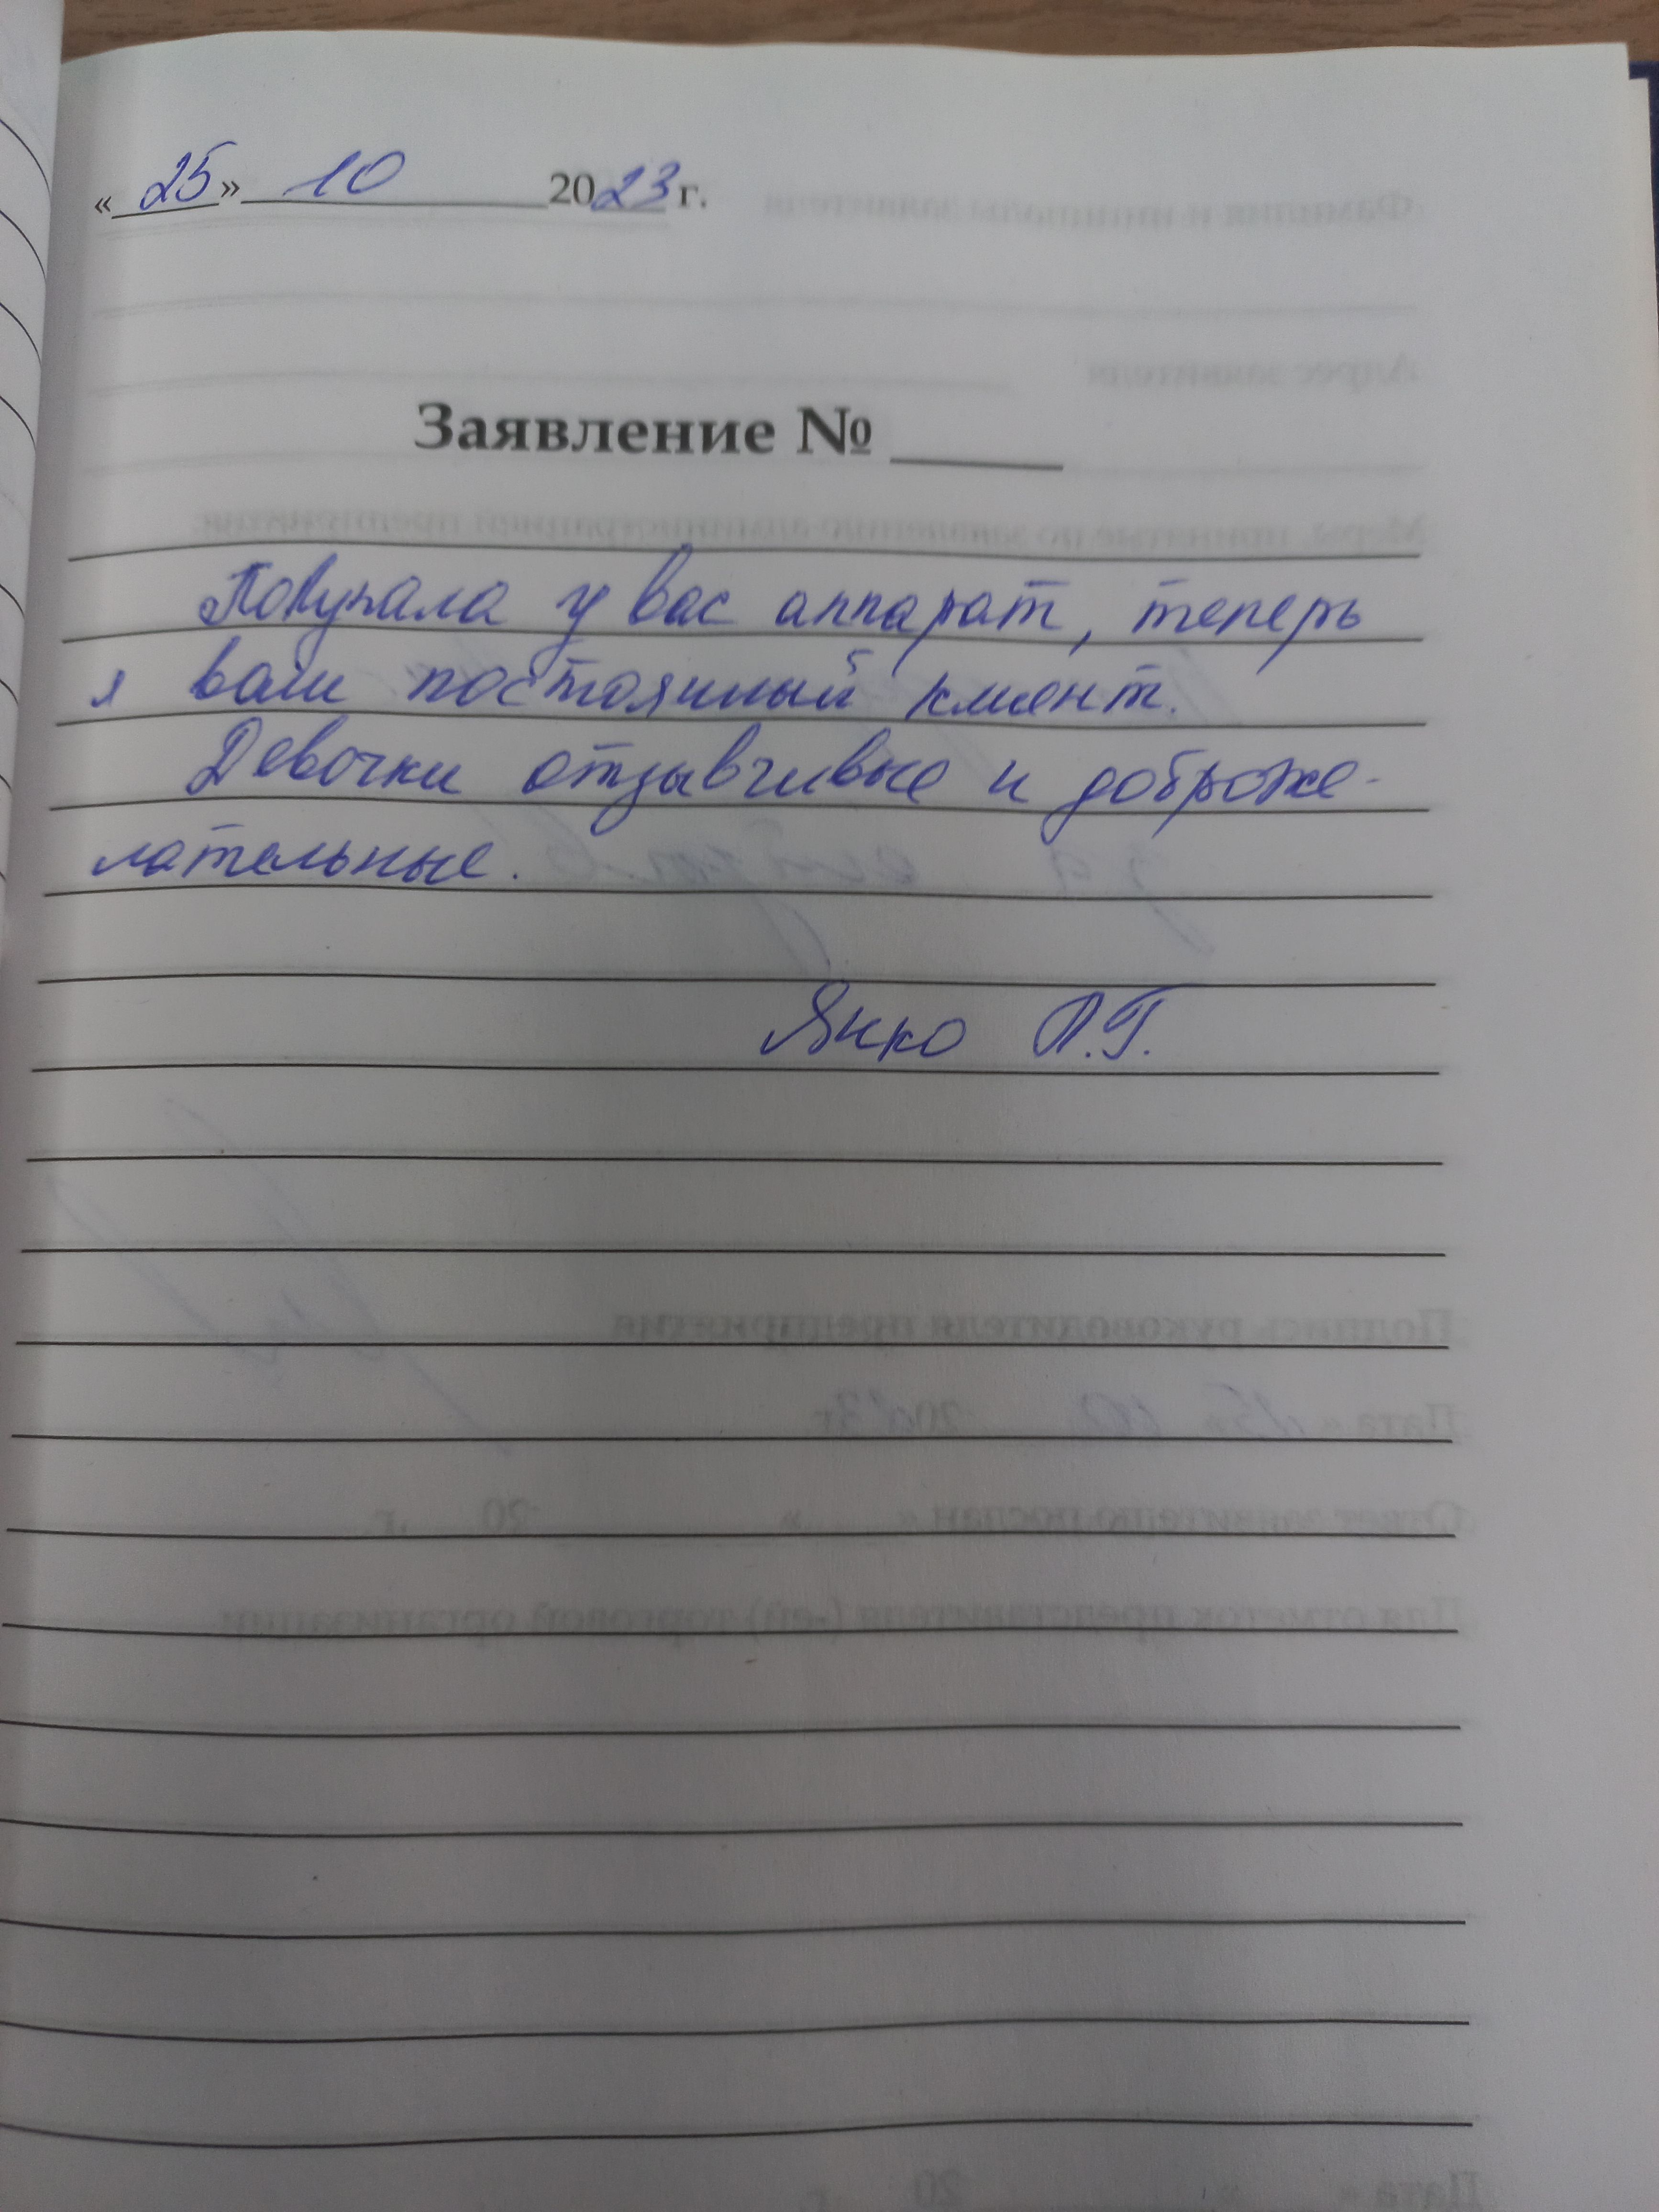 «25» 10 2023 г.
Заявление № ____
Покупала у вас аппарат, теперь
я ваш постоянный клиент.
Девочки отзывчивые и доброже-
лательные.
Янко Л.Г.